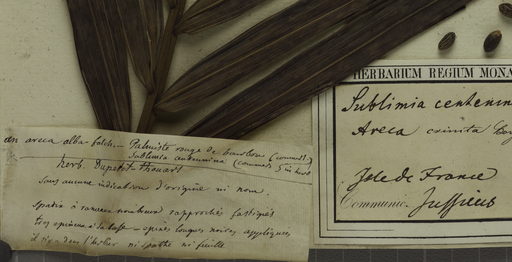 an areca alba fateh. — Palmiste rouge de bourbon (commers.)
Sublimia centennina (commers.) in herb
herb. Dupetit Thouars
Sans aucune indication d'origine ni nom.
Spadix à rameaux nombreux rapprochés fastigiés
très épineux à la base — épines longues noires appliquées
il n'y a dans l'herbier ni spathe ni feuille
HERBARIUM REGIUM MONA
Sublimia centenin
Areca crinita Bory
Isle de France
Communic. Jussieus